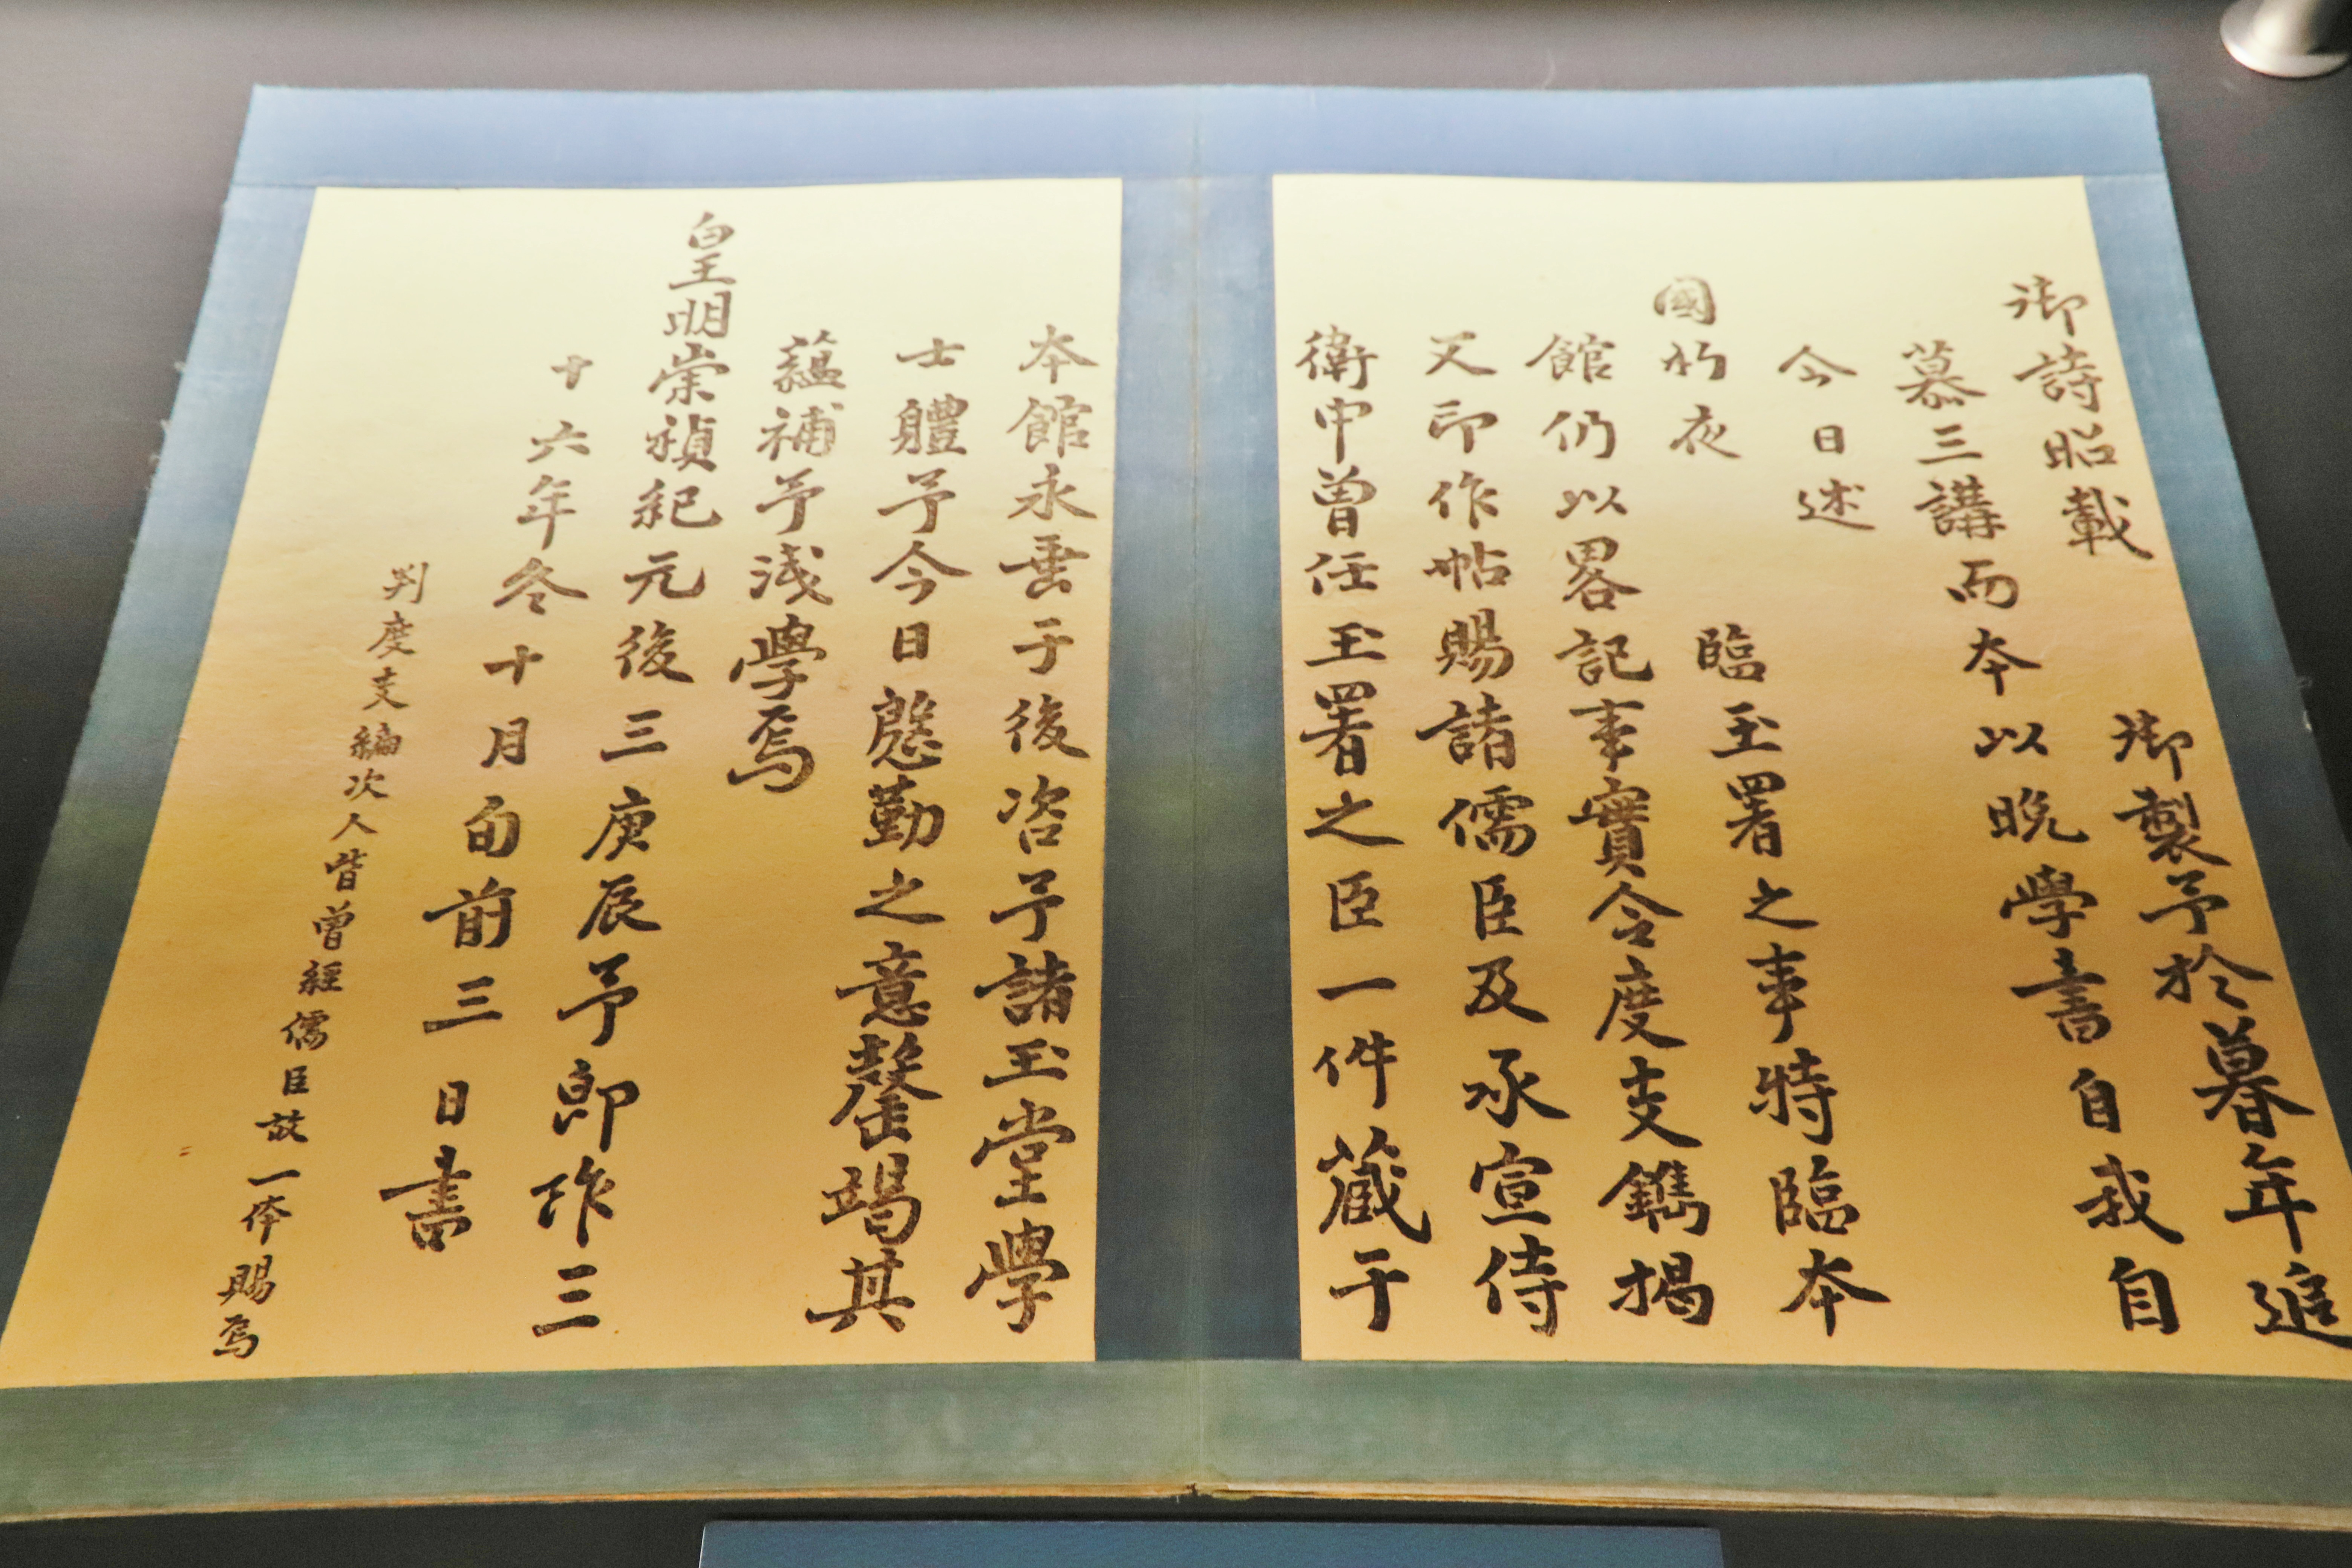 御詩昭載 御製予於暮年追
慕三講而本以晚學書自我自
今日述
國初夜 臨玉署之事特臨本
館仍以畧記事實令度支鐫揭
又印作帖賜諸儒臣及承宣侍
衛中曾任玉署之臣一件藏于
本館永垂于後咨予諸玉堂學
士軆予今日慇勤之意罄竭其
蘊補予淺學焉
皇明崇禎紀元後三庚辰予即祚三
十六年冬十月旬前三日書
判度支編次人皆曾經儒臣故一体賜焉